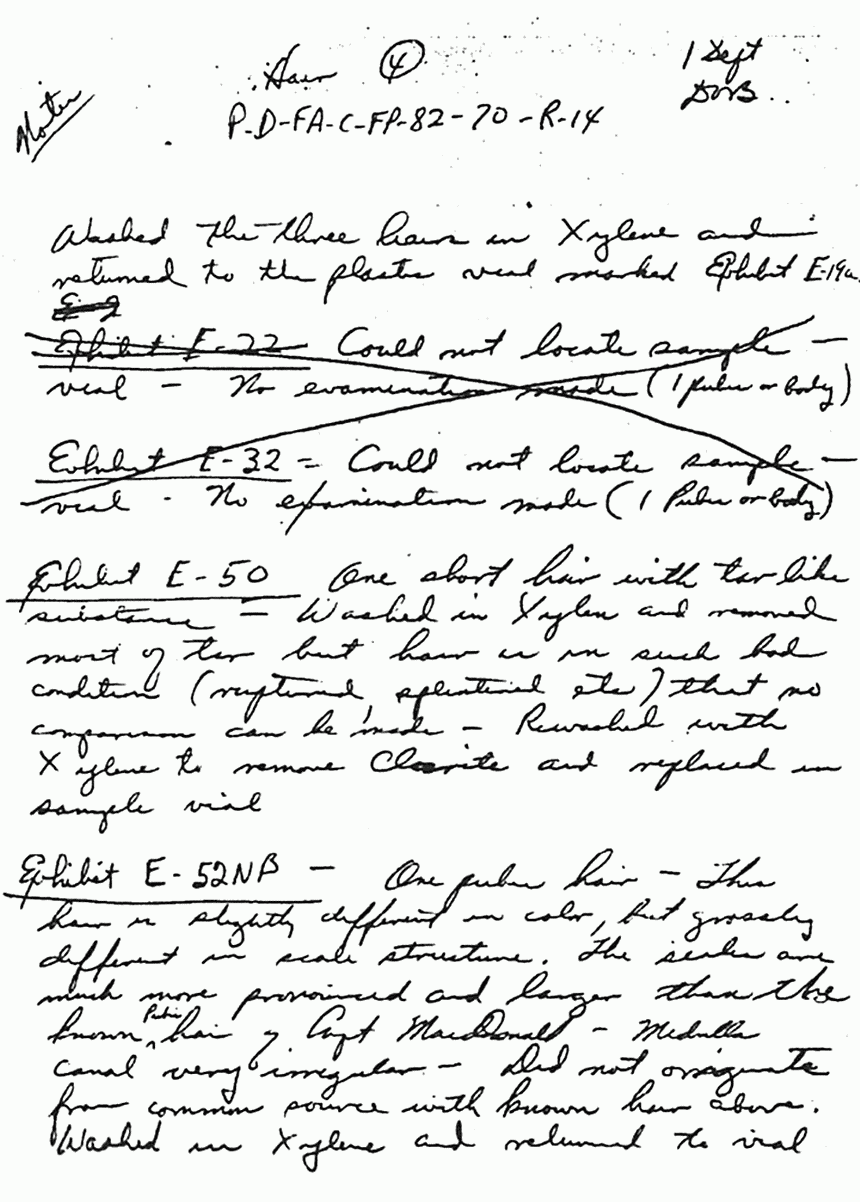 Notes
Hair 4
1 Sept
P-D-FA-C-FP-82-70-R-14
Washed the three hairs in Xylene and
returned to the plastic vial marked Exhibit E-19a
E-2
Exhibit E-22 Could not locate sample -
vial - No examination made (1 pubic or body)
Exhibit E-32 - Could not locate sample -
vial - No examination made (1 Pubic or body)
Exhibit E-50 One short hair with tar like
substance - Washed in Xylen and removed
most of tar but hair is in such bad
condition (ruptured, splintered etc) that no
comparison can be made - Rewashed with
Xylene to remove Clarite and replaced in
sample vial
Exhibit E-52NB - One pubic hair - This
hair is slightly different in color, but grossly
different in scale structure. The scales are
much more pronounced and larger than the
known Pubic hair of Capt MacDonald - Medulla
canal very irregular - Did not originate
from common source with known hair above.
Washed in Xylene and returned to vial